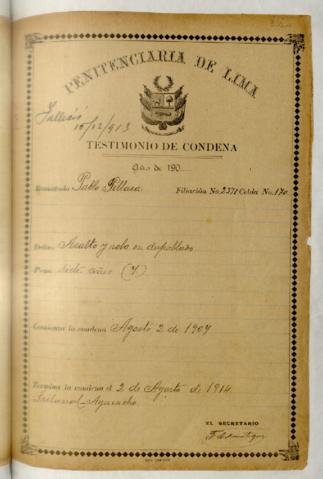 PENITENCIARIA DE LIMA
Falleció
15/12/913
TESTIMONIO DE CONDENA
Año de 190
Rematado Pablo Filiación No. 2371 Celda No. 170
Delito Asalto y robo en despoblado
Pena siete años (7)
Comienza la condena Agosto 2 de 1907
Termina la condena el 2 de Agosto de 1914
Tribunal Ayacucho
EL SECRETARIO